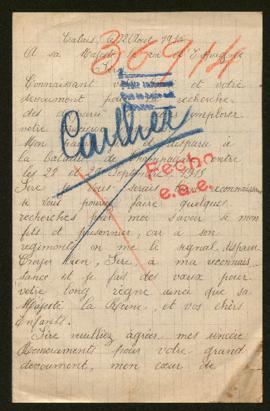 Calais, le 12 Août 1916
A sa Majesté le Roi d'Espagne
36914
Sire
Connaissant votre et votre
dévouement pour recherche
des implorer
votre
Gauthier
Mon disparu à
la Bataille de entre
les 22 et 25 Septembre 1915
Fecho
e.a.e.
Sire je vous serais reconnaissant
si vous pouvez faire quelques
recherches pour moi savoir si mon
fils et prisonnier, car à son
régiment on me le signal disparu
Croyez bien, Sire, à ma reconnais
sance et je fait des vœux pour
votre long règne ainsi que sa
Majesté la Reine, et vos chers
Enfants.
Sire veuillez agréer mes sincère
Remerciements pour votre grand
dévouement, mon cœur de